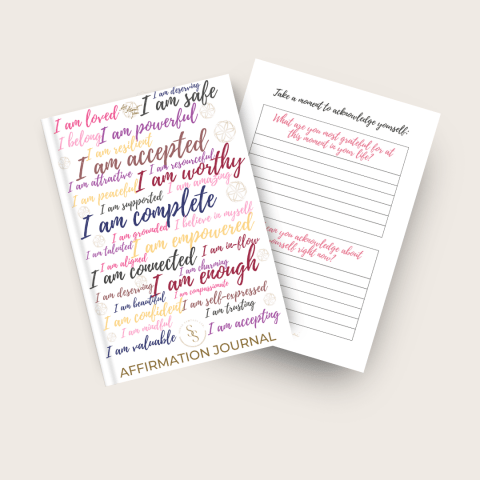 I am deserving
I am loved
I am safe
I belong
I am powerful
I am resilient
I am accepted
I am resourceful
I am attractive
I am worthy
I am peaceful
I am amazing
I am supported
I am complete
I am grounded
I believe in myself
I am talented
I am empowered
I am aligned
I am in-flow
I am connected
I am charming
I am enough
I am deserving
I am compassionate
I am beautiful
I am self-expressed
I am confident
I am trusting
I am mindful
I am accepting
I am valuable
AFFIRMATION JOURNAL
Take a moment to acknowledge yourself:
What are you most grateful for at
this moment in your life?
you acknowledge about
yourself, right now?